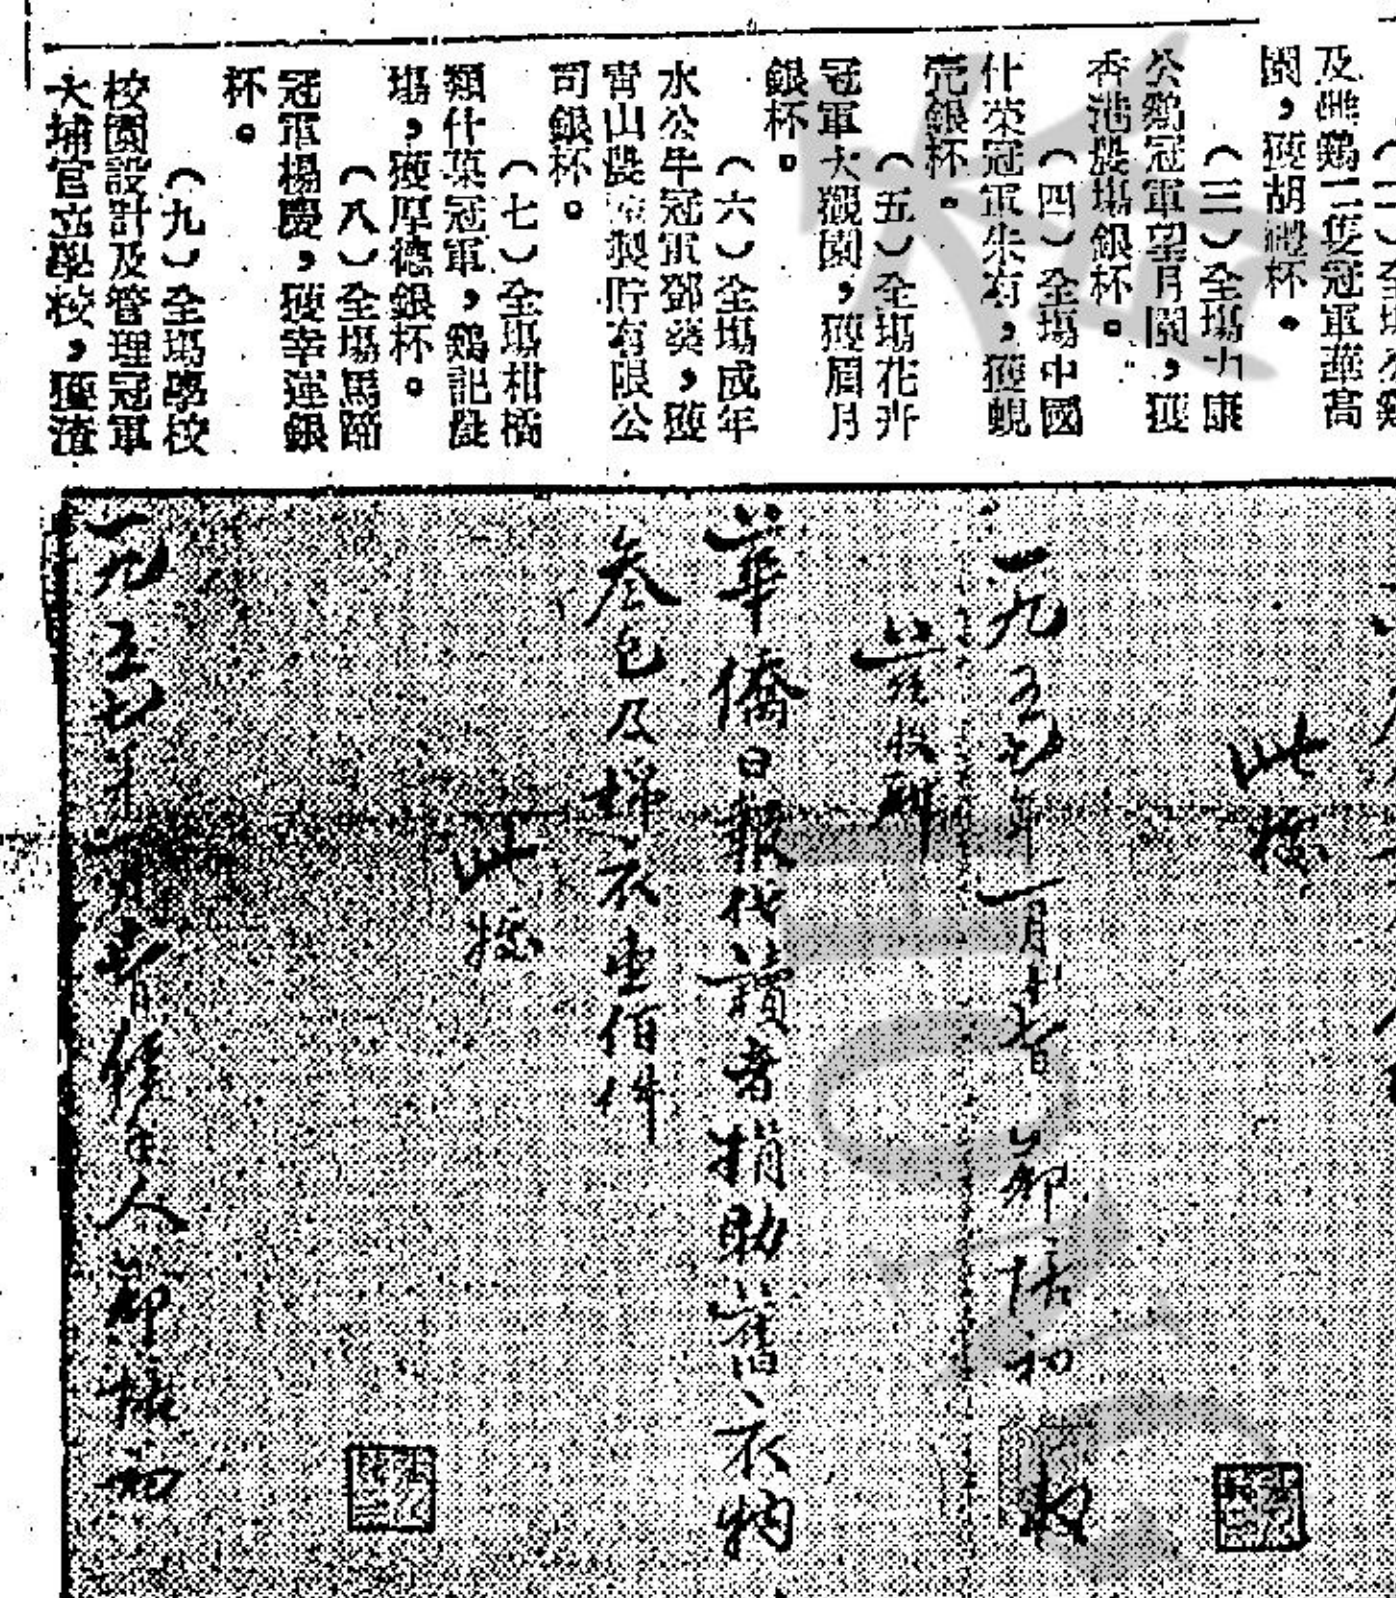 及雌鷄二隻冠軍華富
園，獲胡禮杯。
（三）全場力康
公鷄冠軍望月園，獲
香港農場銀杯。
（四）全場中國
什菜冠軍朱有，獲蜆
売銀杯。
（五）全場花卉
冠軍大觀園，獲眉月
銀杯。
（六）全場成年
水公牛冠軍鄧葵，獲
青山農產製貯有限公
司銀杯。
（七）全場柑橘
類什菓冠軍，鷄記農
場，獲厚德銀杯。
（八）全場馬蹄
冠軍楊慶，獲幸運銀
杯。
（九）全場學校
校園設計及管理冠軍
大埔官立學校，獲渣
此據
一九五七年一月十 日
茲收到
華僑日報代讀者捐助舊衣物
叁包及棉衣壹佰件
此據
一九五七年 月 日經手人